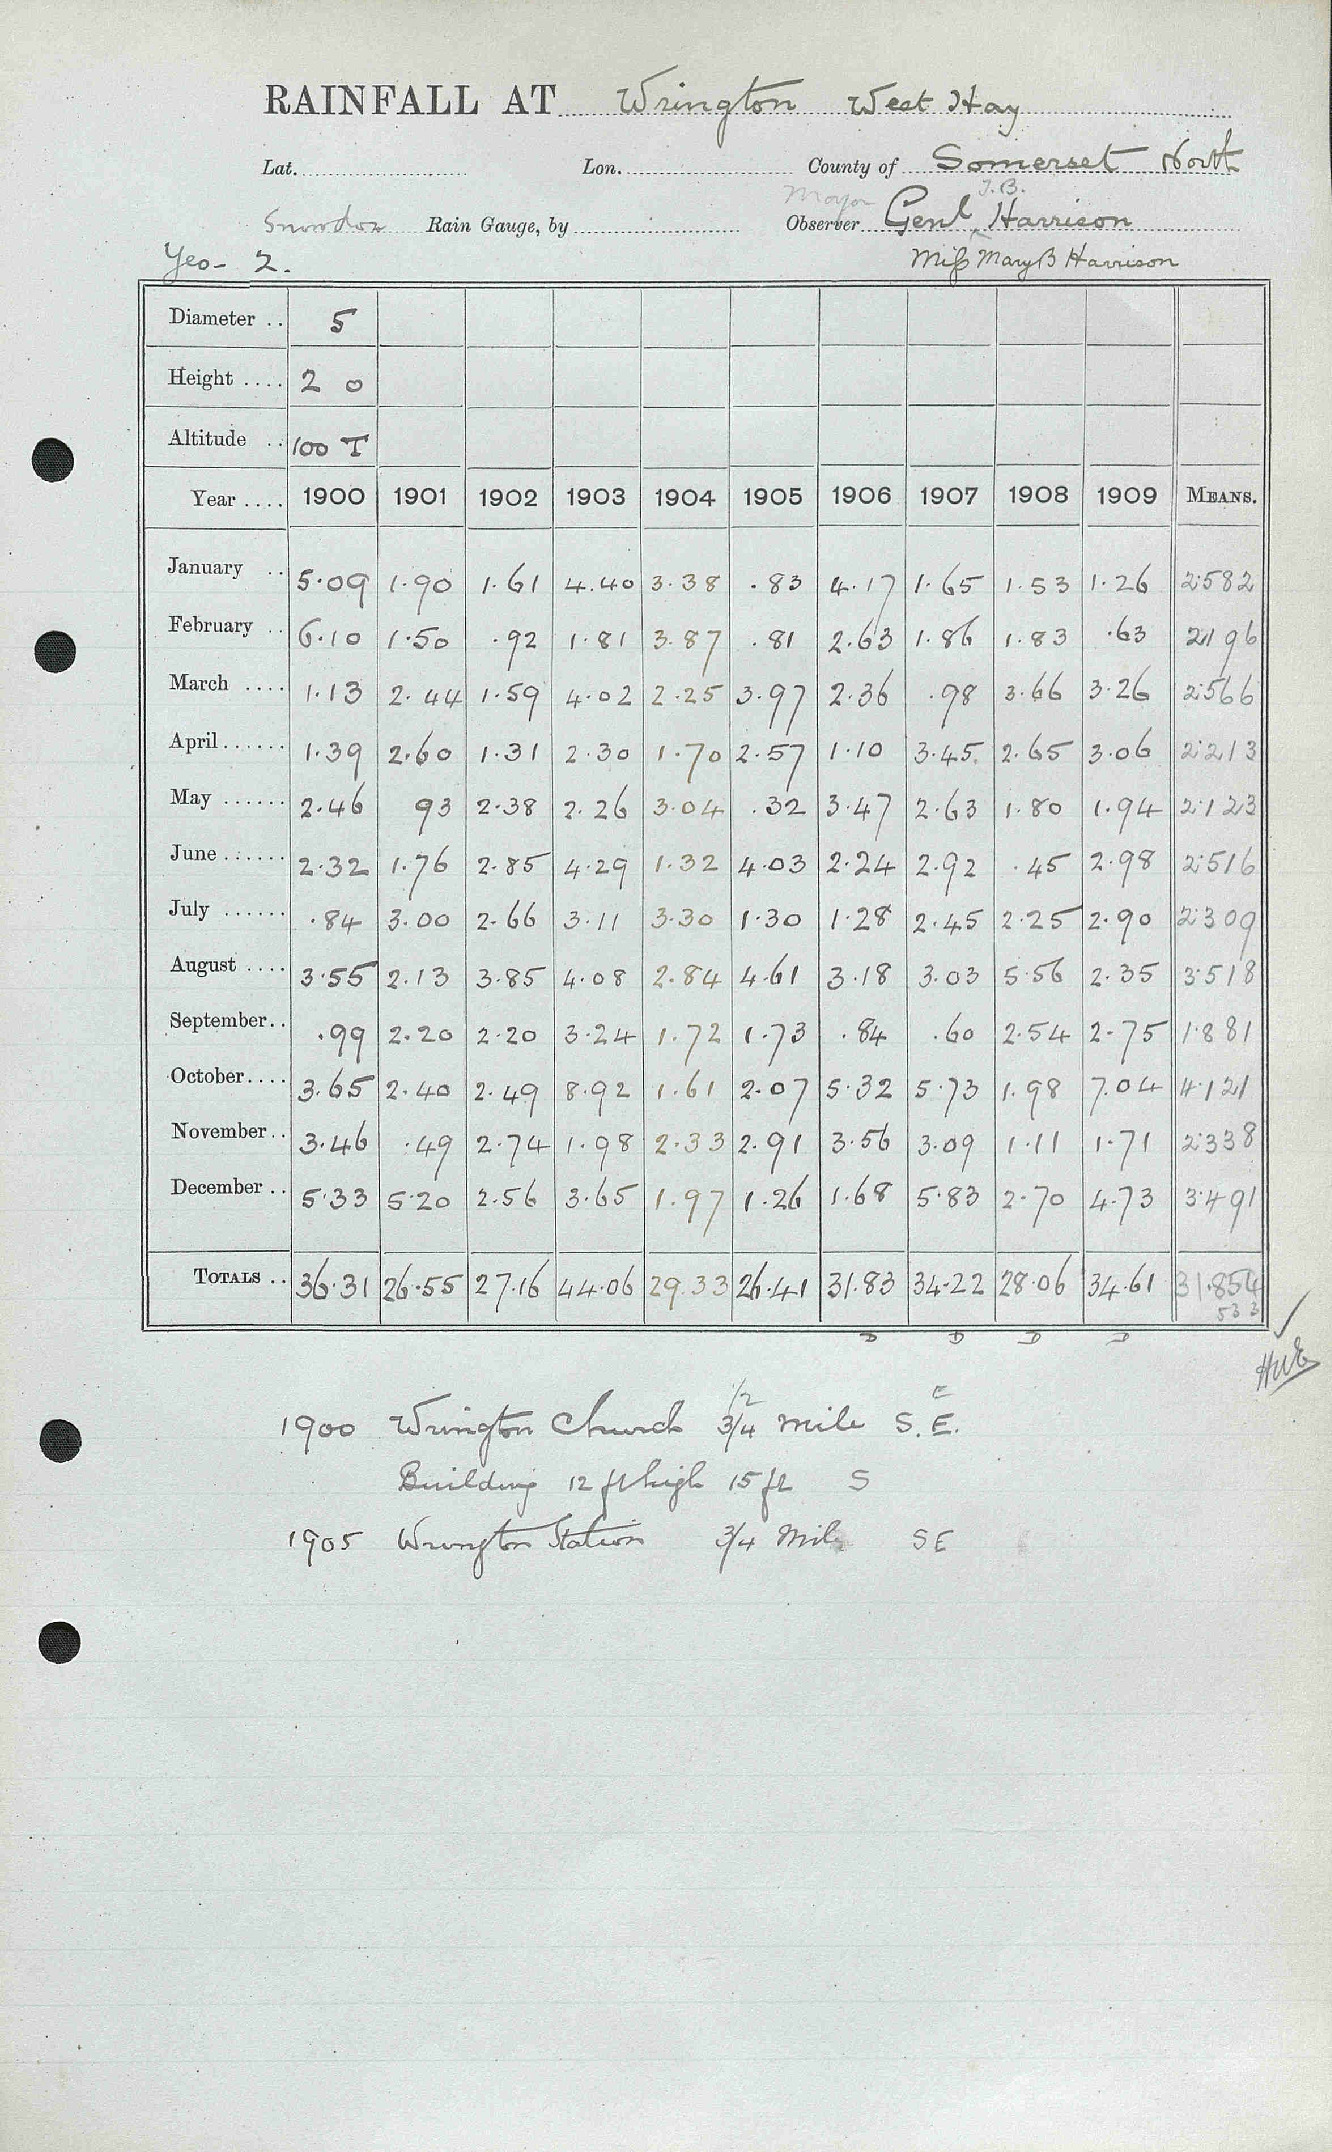 RAINFALL AT Wrington West Hay
Lat. Lon. County of Somerset North
Major J.B.
Snowdon Rain Gauge, by Observer Genl Harrison
Yeo - 2. Miss Mary B Harrison
Diameter .. 5
Height .... 2 0
Altitude .. 100 T
Year .... 1900 1901 1902 1903 1904 1905 1906 1907 1908 1909 MEANS.
January .. 5.09 1.90 1.61 4.40 3.38 .83 4.17 1.65 1.53 1.26 2.582
February .. 6.10 1.50 .92 1.81 3.87 .81 2.63 1.86 1.83 .63 2.196
March .... 1.13 2.44 1.59 4.02 2.25 3.97 2.36 .98 3.66 3.26 2.566
April ...... 1.39 2.60 1.31 2.30 1.70 2.57 1.10 3.45 2.65 3.06 2.213
May ...... 2.46 93 2.38 2.26 3.04 .32 3.47 2.63 1.80 1.94 2.123
June ...... 2.32 1.76 2.85 4.29 1.32 4.03 2.24 2.92 .45 2.98 2.516
July ...... .84 3.00 2.66 3.11 3.30 1.30 1.28 2.45 2.25 2.90 2.309
August .... 3.55 2.13 3.85 4.08 2.84 4.61 3.18 3.03 5.56 2.35 3.518
September .. .99 2.20 2.20 3.24 1.72 1.73 .84 .60 2.54 2.75 1.881
October .... 3.65 2.40 2.49 8.92 1.61 2.07 5.32 5.73 1.98 7.04 4.121
November .. 3.46 .49 2.74 1.98 2.33 2.91 3.56 3.09 1.11 1.71 2.338
December .. 5.33 5.20 2.56 3.65 1.97 1.26 1.68 5.83 2.70 4.73 3.491
TOTALS .. 36.31 26.55 27.16 44.06 29.33 26.41 31.83 34.22 28.06 34.61 31.854
533
D D D D
1/2 E
1900 Wrington Church 3/4 mile S. E.
Building 12 ft high 15 ft S
1905 Wrington Station 3/4 Mile SE